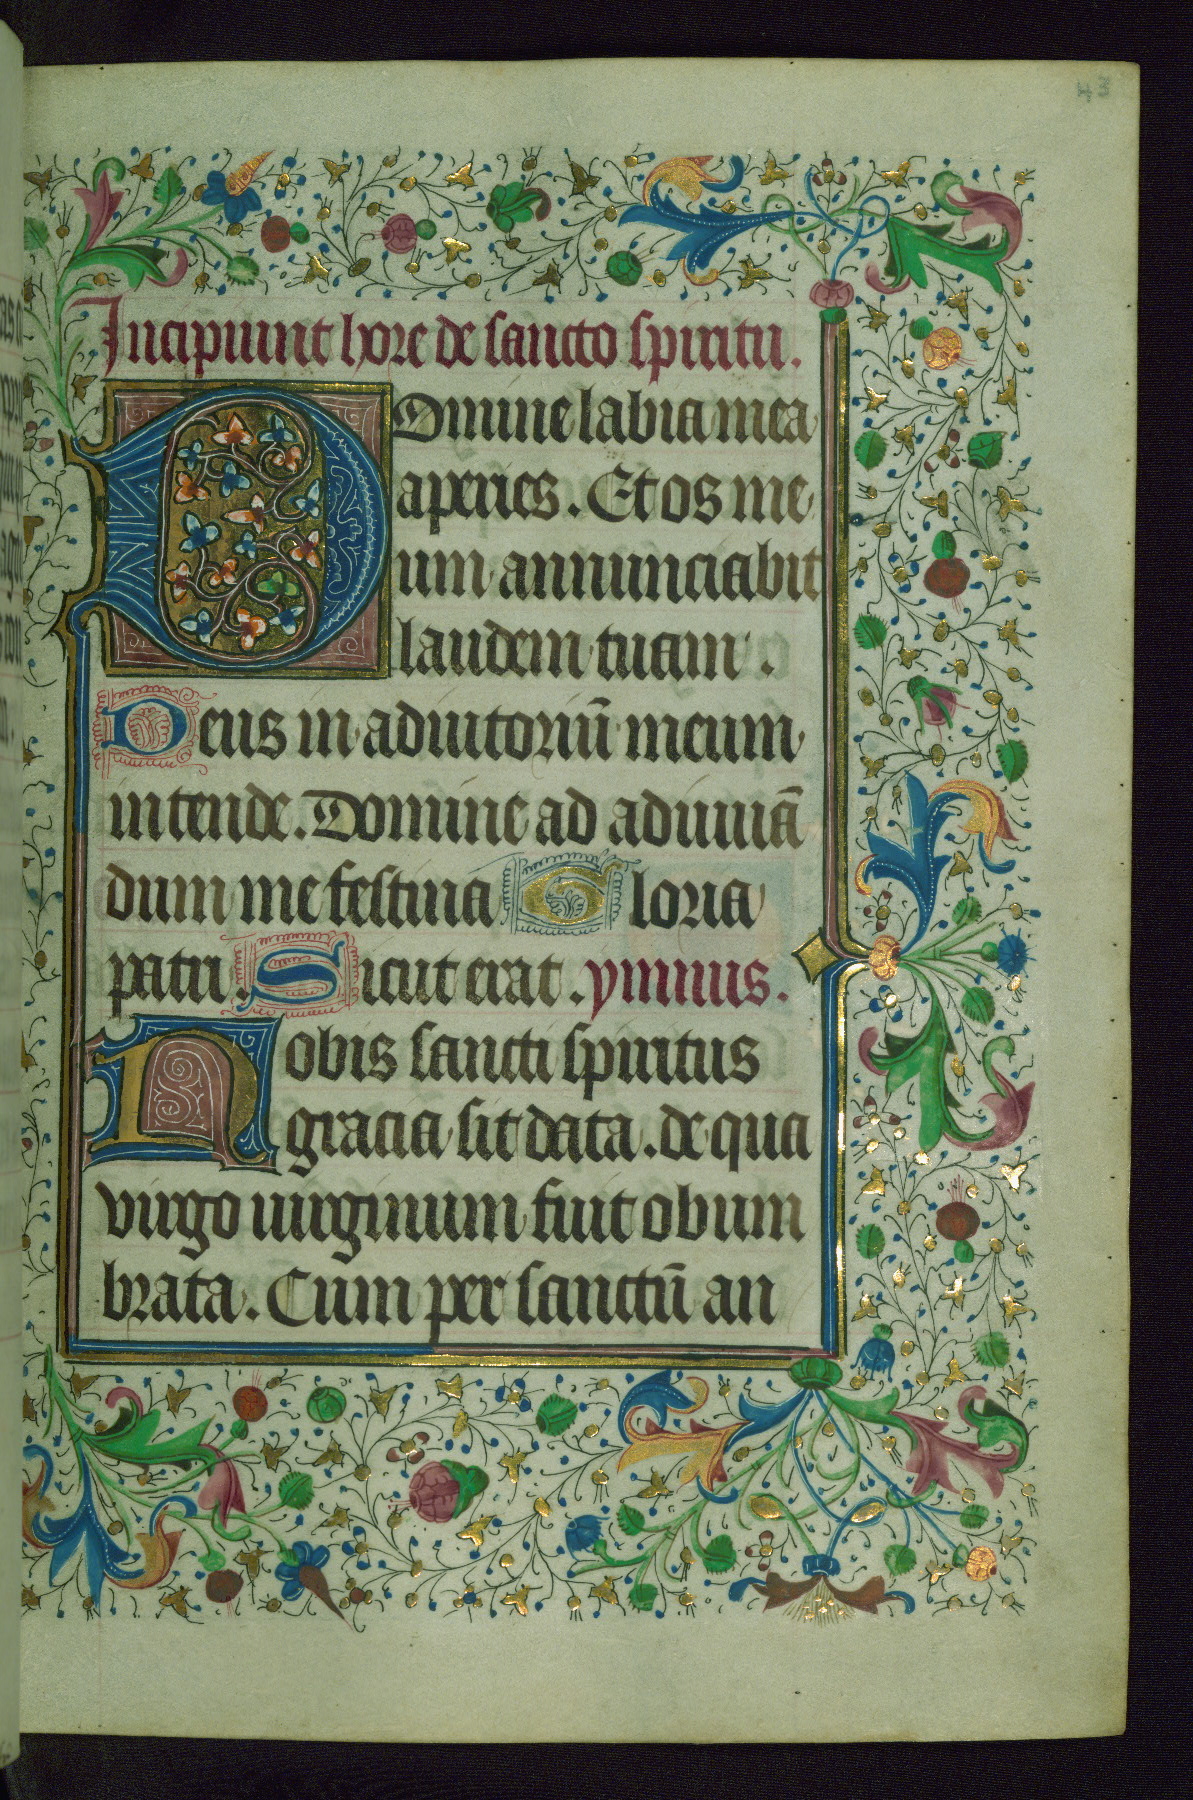 43
Incipiunt hore de sancto spiritu.
Domine labia mea
aperies. Et os me
um annunciabit
laudem tuam.
Deus in adiutoriū meum
intende. Domine ad adiuuā
dum me festina Gloria
patri. Sicut erat. ympnus.
Nobis sancti spiritus
gracia sit data. de qua
virgo uirginum fuit obum
brata. Cum per sanctū an